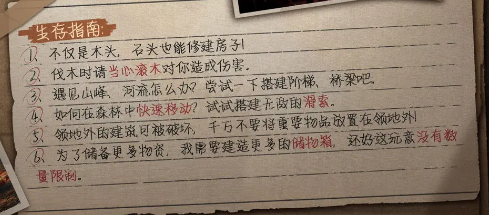 生存指南:
1. 不仅是木头，石头也能修建房子!
2. 伐木时请当心滚木对你造成伤害。
3. 遇见山峰、河流怎么办? 尝试一下搭建阶梯、桥梁吧。
4. 如何在森林中快速移动? 试试搭建无敌的滑索。
5. 领地外的建筑可被破坏，千万不要将重要物品放置在领地外!
6. 为了储备更多物资，我需要建造更多的储物箱，还好这玩意没有数
量限制。